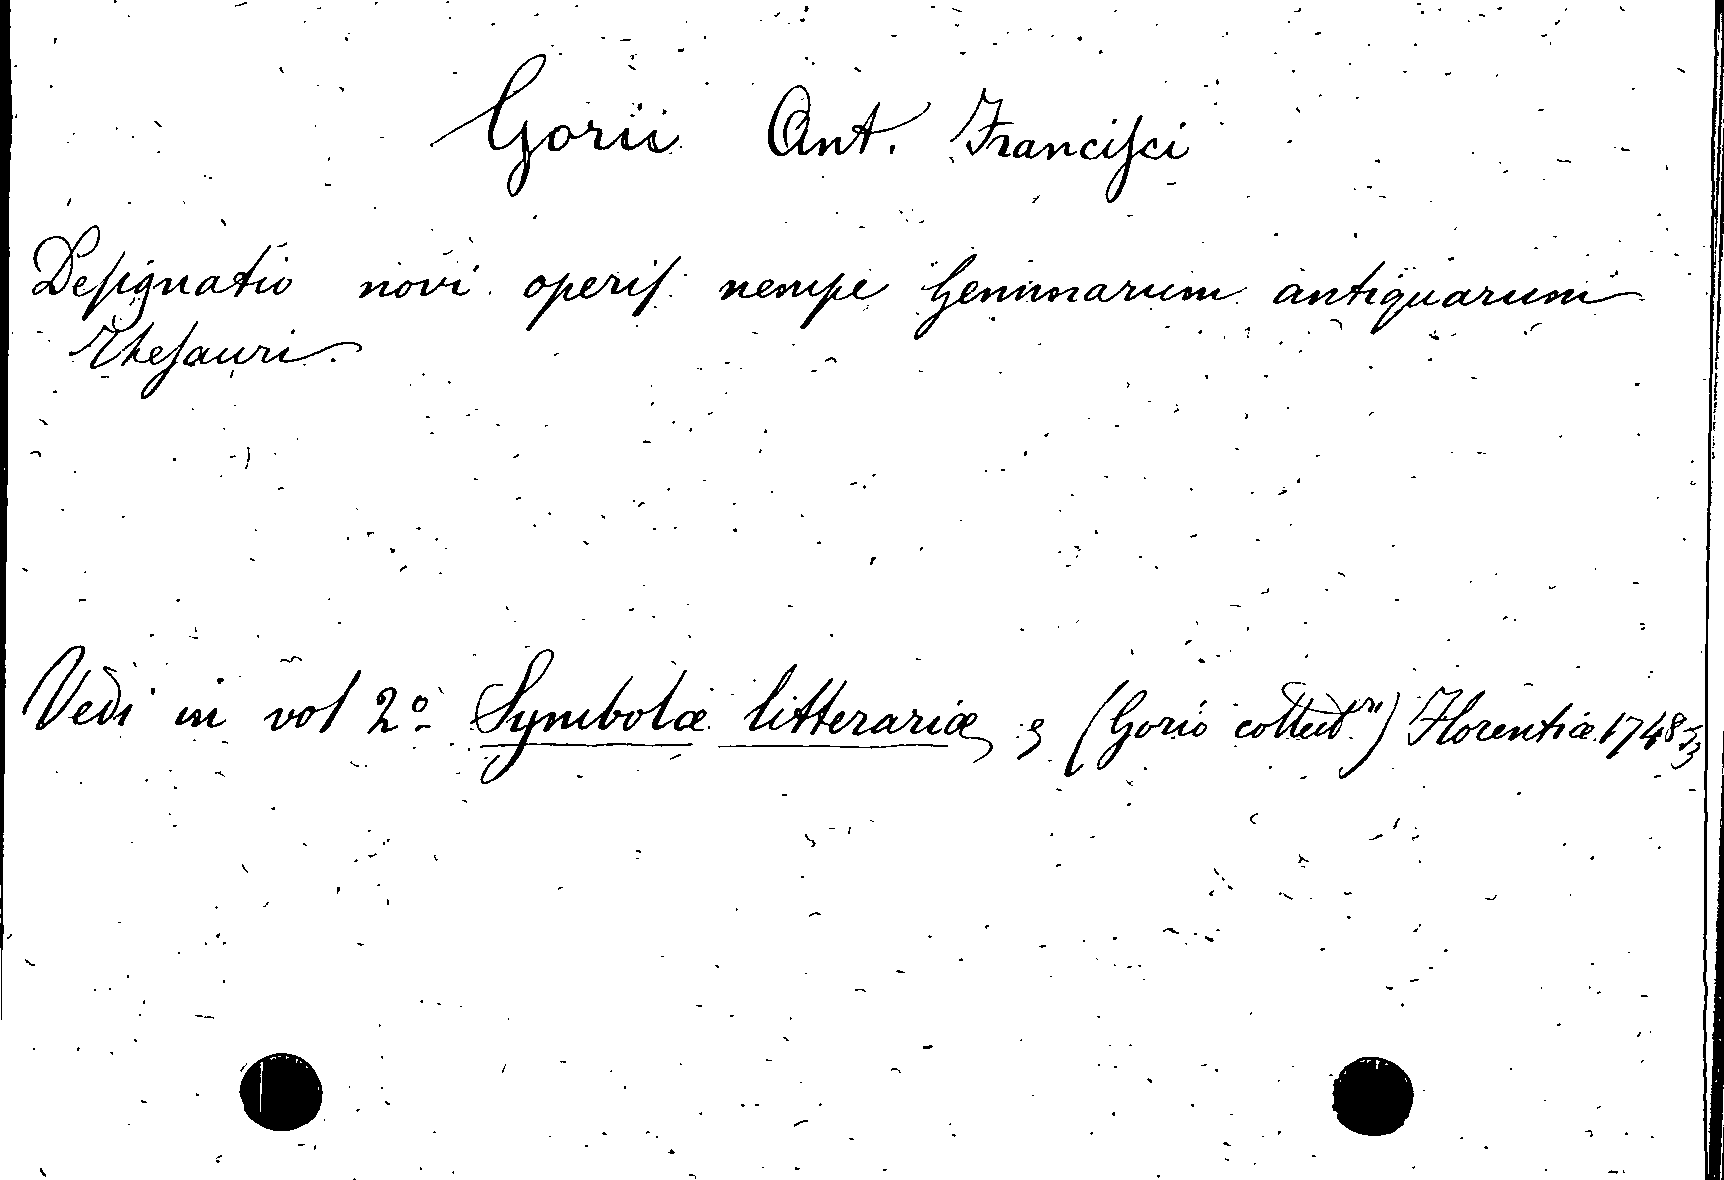 Gorii Ant. Franciſci
Deſignatio novi operiſ nempe Gemmarum antiquarum
Theſauri.
Vedi in vol 2º Symbolæ litterariæ, (Gorio) Florentiæ 1748